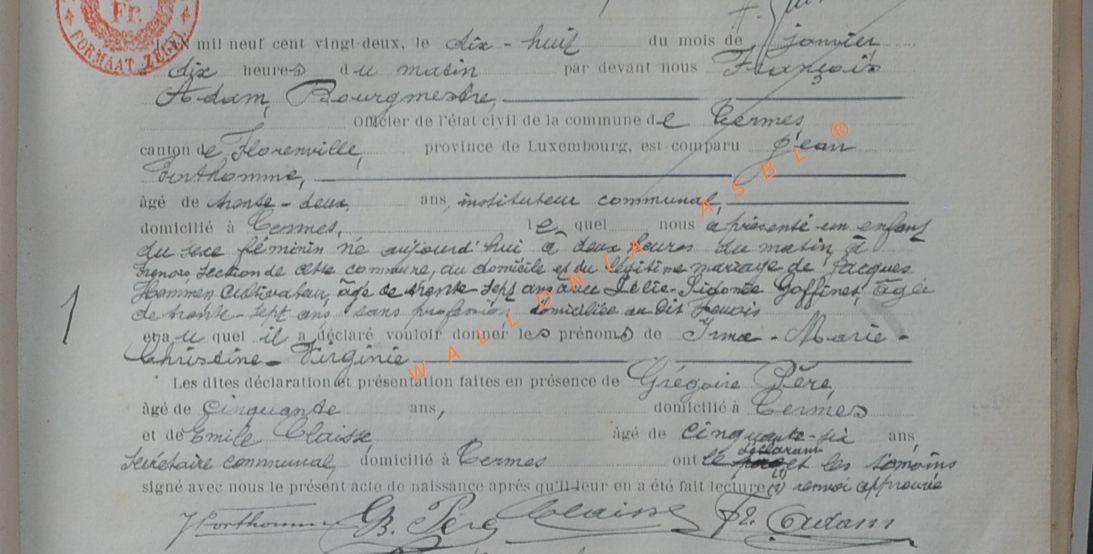 Fr.
FORMAAT ZEGEL
L'an mil neuf cent vingt-deux, le dix-huit du mois de janvier,
dix heures du matin par devant nous François
Adam, Bourgmestre,
officier de l'état civil de la commune de Termes
canton de Florenville, province de Luxembourg, est comparu Jean
Forthomme,
âgé de trente-deux ans, instituteur communal,
domicilié à Termes, lequel nous a présenté un enfant
du sexe féminin né aujourd'hui à deux heures du matin, à
section de cette commune, au domicile et du légitime mariage de Jacques
Cultivateur, âgé de trente-sept ans avec Sidonie Goffinet, âgée
de trente-sept ans sans profession domiciliée au dit
et auquel il a déclaré vouloir donner les prénoms de Irma-Marie-
Christine-Virginie
Les dites déclaration et présentation faites en présence de Grégoire Père,
âgé de cinquante ans, domicilié à Termes
et de Emile Claisse, âgé de cinquante-six ans,
secrétaire communal, domicilié à Termes ont le déclarant et les témoins
signé avec nous le présent acte de naissance après qu'il leur en a été fait lecture (1) renvoi approuvé
J Forthomme G. Père Claisse Fr. Adam
1
WALLONIA ASBL ®